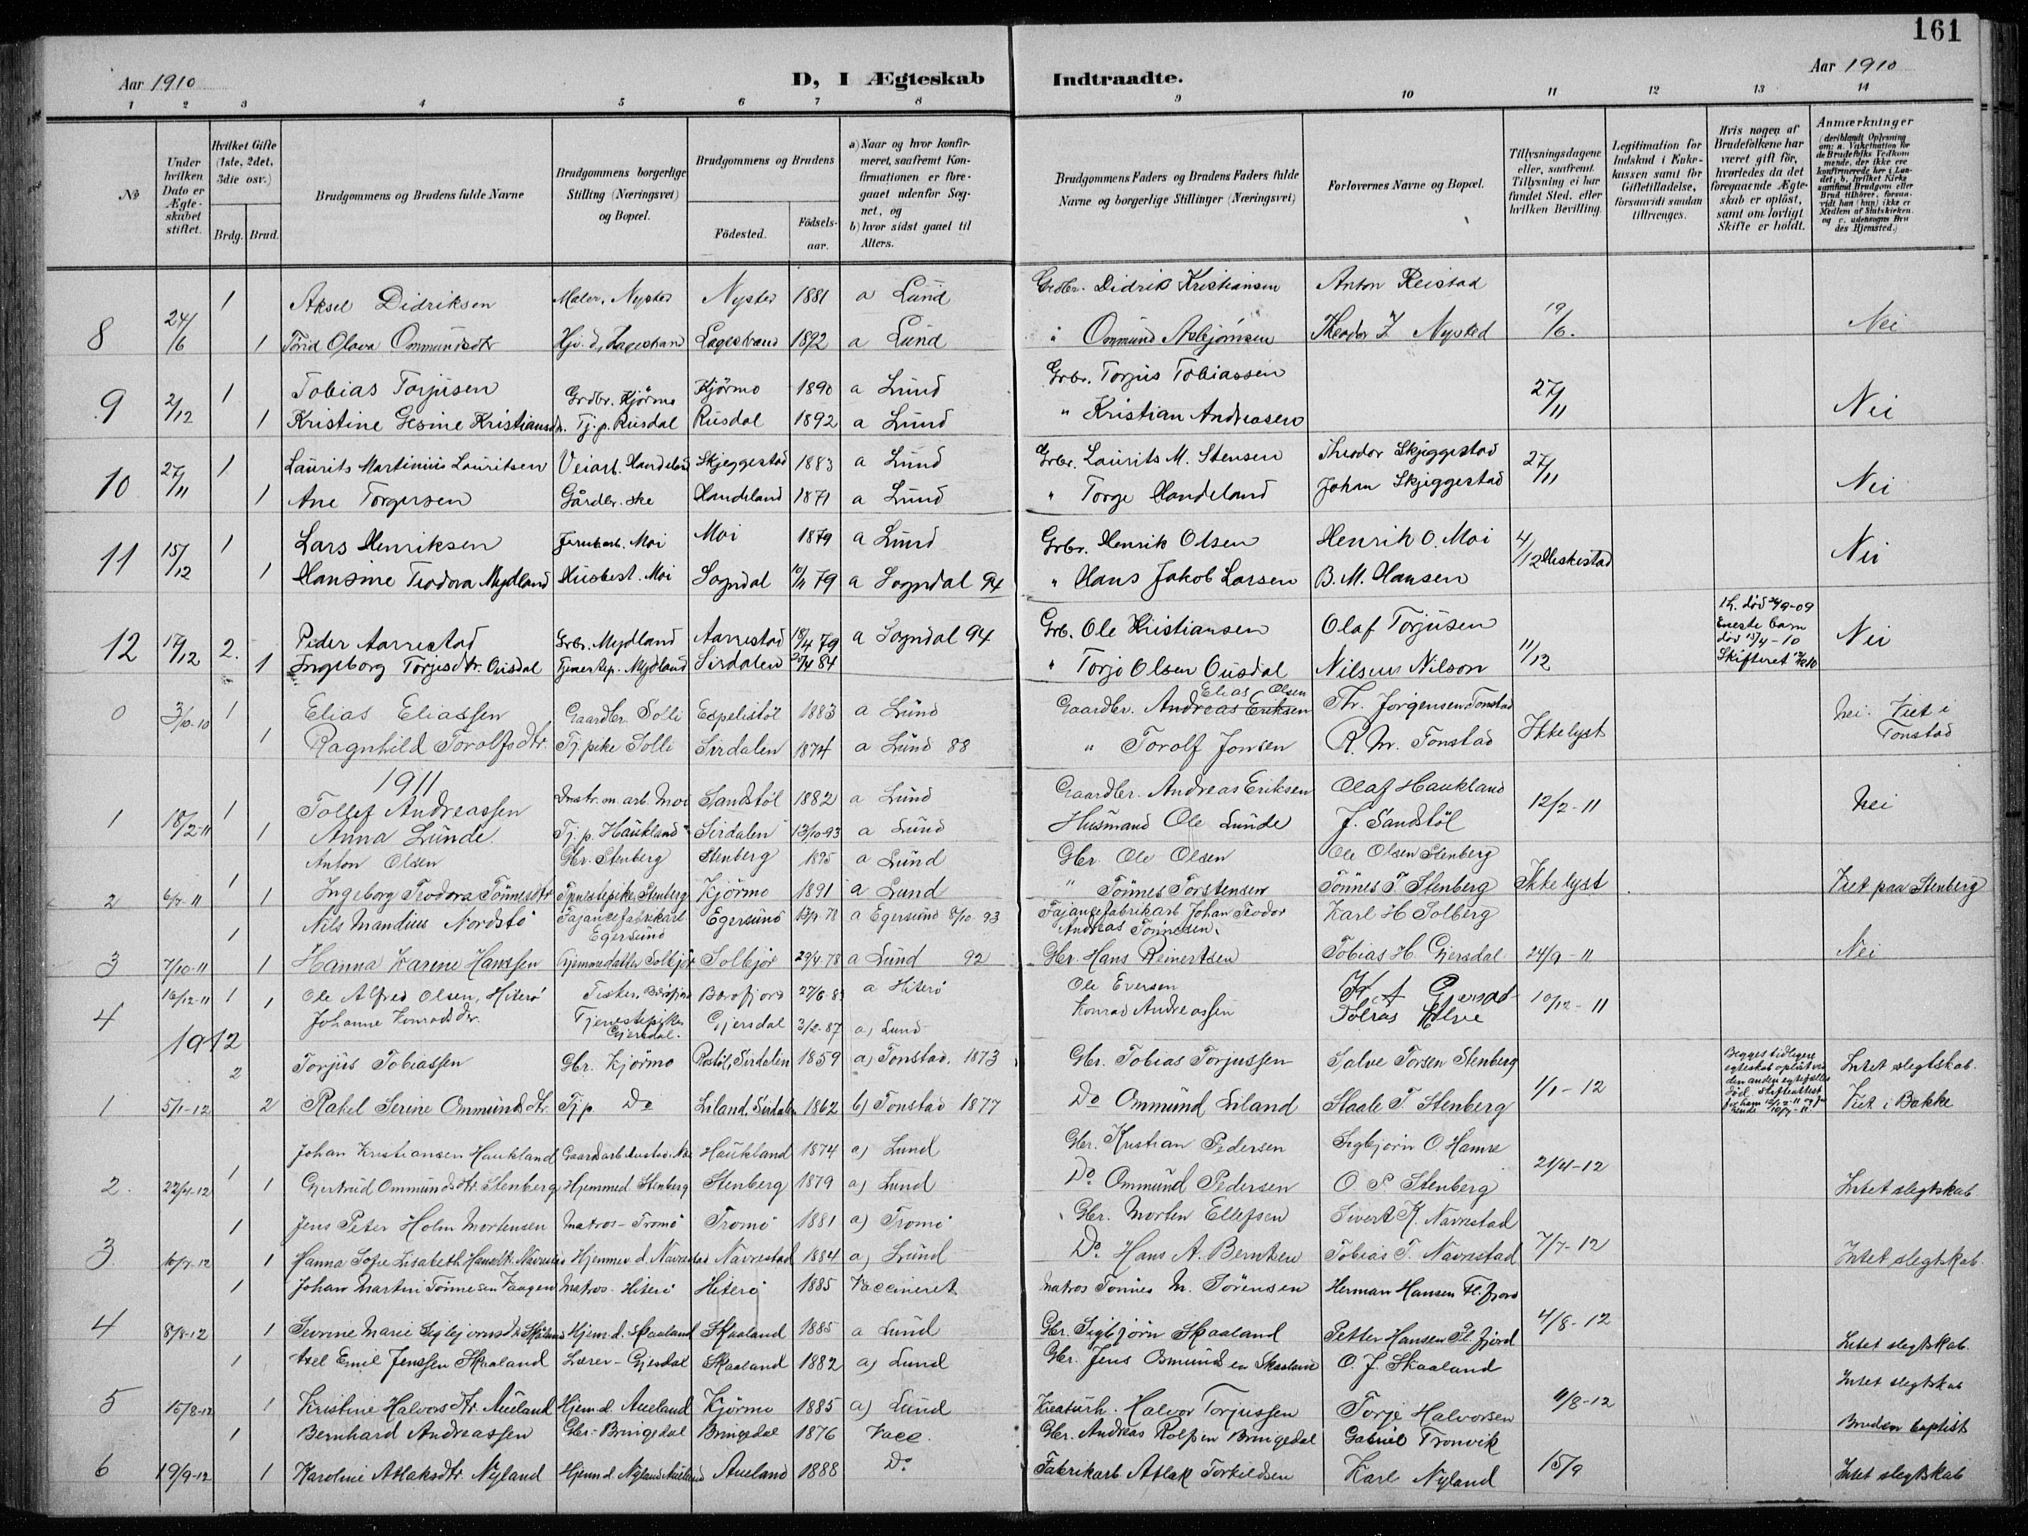 161
Aar 1910
D, I Ægteskab Indtraadte.
Aar 1910
1 2 3 4 5 6 7 8 9 10 11 12 13 14
No
Under hvilken Dato er Ægteskabet stiftet.
Hvilket Gifte (1ste, 2det, 3die osv.)
Brdg. Brud.
Brudgommens og Brudens fulde Navne
Brudgommens borgerlige Stilling (Næringsvei) og Bopæl.
Brudgommens og Brudens
Fødested.
Fødselsaar.
a) Naar og hvor konfirmeret, saafremt Konfirmationen er foregaaet udenfor Sognet, og
b) hvor sidst gaaet til Alters.
Brudgommens Faders og Brudens Faders fulde Navne og borgerlige Stillinger (Næringsvei)
Forlovernes Navne og Bopæl.
Tillysningsdagene eller, saafremt Tillysning ei har fundet Sted, efter hvilken Bevilling.
Legitimation for Indskud i Enkekassen samt for Giftetilladelse, forsaavidt saadan tiltrænges.
Hvis nogen af Brudefolkene har været gift før, hvorledes da det foregaaende Ægteskab er opløst, samt om lovligt Skifte er holdt.
Anmærkninger
(deriblandt Oplysning om: a. Vaksination for de Brudefolks Vedkommende, der ikke ere konfirmerede her i Landet; b. hvilket Kirkesamfund Brudgom eller Brud tilhører, forsaavidt han (hun) ikke er Medlem af Statskirken, og c. udensogns Brudes Hjemsted.)
1 Aksel Didriksen Maler, Nysted Nysted 1881 a Lund Grdbr. Didrik Kristiansen Anton Reistad
8 24/6 1 Torid Olava Ommundsdtr Hjv. d. Lagestrand Lagestrand 1892 a Lund " Ommund Asbjørnsen Theodor Z Nysted 19/6. Nei
1 Tobias Torjusen Grdbr. Kjörmo Kjörmo 1890 a Lund Grbr. Torjus Tobiassen
9 2/12 1 Kristine Gesine Kristiansdtr. Tj. p. Rusdal Rusdal 1892 a Lund " Kristian Andreasen 27/11 Nei
1 Laurits Martinius Lauritsen Veiarb. Handeland Skjeggestad 1883 a Lund Grbr. Laurits M. Stensen Theodor Skjeggestad
10 27/11 1 Ane Torgersen Gårdbr.ske Handeland 1871 a Lund " Torge Handeland Johan Skjeggestad 27/11 Nei
1 Lars Henriksen Jernbarb. Moi Moi 1879 a Lund Grbr. Henrik Olsen Henrik O. Moi
11 15/12 1 Hansine Teodora Mydland Husbest. Moi Sogndal 10/11 79 a Sogndal 94 " Hans Jakob Larsen B. M. Hansen 4/12 Heskestad Nei
12 17/12 2. Peder Aarrestad Grbr. Mydland Aarrestad 18/4 79 a Sogndal 94 Grb. Ole Kristiansen Olaf Torjusen 1 h. død 26/9-09 Eneste barn død 15/4-10 Nei
1 Ingeborg Torjesdtr. Ousdal Tjenestep. Mydland Sirdalen 24/4 84 " Torje Olsen Ousdal Nilsus Nilson 11/12 Skifteret
0 3/10-10 1 Elias Eliassen Gaardbr. Solli Espelistöl 1883 a Lund Gaardbr. Andreas Eriksen Elias Olsen Th. Jörgensen Tonstad nei. Viet i Tonstad
1 Ragnhild Torolfsdtr. Tj. pike Solli Sirdalen 1874 a Lund 88 " Torolf Jonsen R. M. Tonstad Ikke lyst
1911
1 Tollef Andreassen arb. Moi Sandstöl 1882 a Lund Gaardbr. Andreas Eriksen Olaf Haukland
1 18/2-11 1 Anna Lunde. Tj. p. Haukland Sirdalen 13/10-93 a Lund Husmand Ole Lunde J. Sandstöl 12/2-11 nei
1 Anton Olsen Gbr. Stenberg Stenberg 1895 a Lund Gbr. Ole Olsen Ole Olsen Stenberg
2 6/7-11 1 Ingeborg Teodora Tönnesdtr Tjenestepike Stenberg Kjörmo 1891 a Lund " Tönnes Torstensen Tönnes T Stenberg Ikke lyst Viet paa Stenberg
1 Nils Mandius Nordstö Fajancefabrikarb Egersund Egersund 13/9 78 a Egersund 8/10 93 Fajancefabrikarb Johan Teodor Andreas Tönnesen. Karl H Solberg
3 7/10-11 1 Hanna Karine Hanssen Hjemmedatter Solbjör Solbjör 29/4 78 a Lund 92 Gbr Hans Reinertsen Tobias H. Gjersdal 24/9-11 Nei
16/12-11 1 Ole Alfred Olsen, Hiterö Fisker, Böröfjord Borofjord 27/6-89 a Hiterö Ole Eversen
4 1 Johanne Konradsdtr. Tjenestepike Gjersdal. Gjersdal 3/2-87 a) Lund Konrad Andreassen Tobias 10/12-11
1912
2 Torjus Tobiassen Gbr. Kjörmo Rostöl, Sirdalen 1859 a) Tonstad. 1873 Gbr. Tobias Torjussen Salve Torsen Stenberg Begges tidligere egteskab opløst ved den anden egtefælles død. Intet slegtskab.
1 5/1-12 2 Rakel Serine Ommundsdtr. Tj. p. Do Liland, Sirdalen 1862 b) Tonstad 1877 Do Ommund Liland Staale T. Stenberg 1/1-12 Viet i Bakke
1 Johan Kristiansen Haukland Gaardarb. Haukland 1874 a) Lund Gbr. Kristian Pedersen Sigbjörn O Hamre
2. 22/4-12 1 Gjertrud Ommundsdtr. Stenberg Hjemmed. Stenberg Stenberg 1879 a) Lund Do. Ommund Pedersen O P. Stenberg 21/4-12 Intet slegtskab
1 Jens Peter Holm Mortensen Matros - Tromö Tromö 1881 a) Tromö Gbr. Morten Ellefsen Sivert K. Navrestad
3. 16/7-12 1 Hanna Sofie Lisabeth Hansdtr. Navrestad Hjemmev d. Navrestad Navrestad 1884 a) Lund Do. Hans A. Berntsen Tobias T. Navrestad 7/7-12 Intet slegtskab.
1 Johan Martin Tönnesen Vaagen Matros. Hiterö Hiterö 1885 Vaccineret Matros Tönnes M. Sörensen Herman Hansen Fl. fjord
4 8/8-12 1 Severine Marie Sigbjörnsdtr Skaaland Hjem. d. Skaaland Skaaland 1885 a Lund Gbr. Sigbjörn Skaaland Petter Hansen Fl. fjord 4/8-12 Intet slegtskab.
1 Axel Emil Jenssen Skaaland Lærer - Gjesdal Skaaland 1882 a) Lund Gbr. Jens Osmundsen Skaaland O. J. Skaaland Intet slegtskab
5 15/8-12 1 Kristine Halvorsdtr. Aueland Hjem d. Aueland Kjörmo 1885 a) Lund Kreaturh. Halvor Torjussen Torje Halvorsen 4/8-12
1 Bernhard Andreassen Gbr. - Bringedal Bringedal 1876 Vacc. Gbr. Andreas Rolfsen Bringedal Gabriel Tronvik Bruden baptist
6 19/9-12 1 Karoline Atlaksdtr. Nyland Hjem d. Nyland Aueland Aueland 1888 Do. Fabrikarb Atlak Torkildsen Karl Nyland 15/9 Intet slegtskab